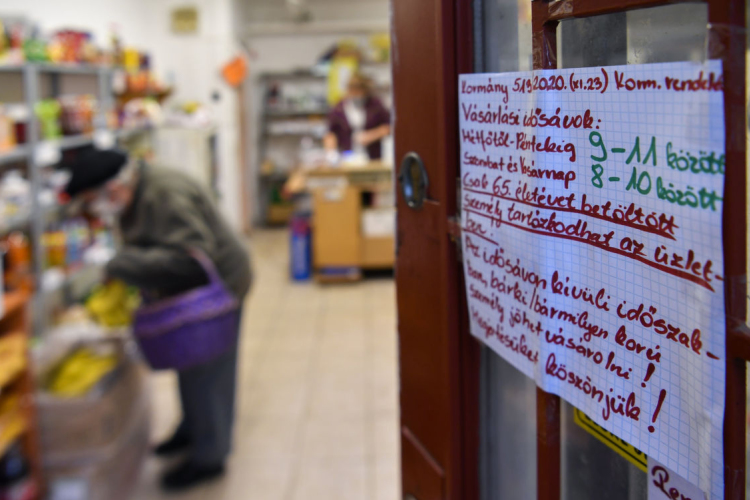 Kormány 519/2020. (XI.23) Korm. rendelet
Vásárlási idősávok:
Hétfőtől-Péntekig 9-11 között
Szombat és Vasárnap 8-10 között
Csak 65. életévet betöltött
személy tartózkodhat az üzlet-
be.
Az idősávon kívüli időszak-
ban, bárki/bármilyen korú
személy jöhet vásárolni!
Megértésüket köszönjük!